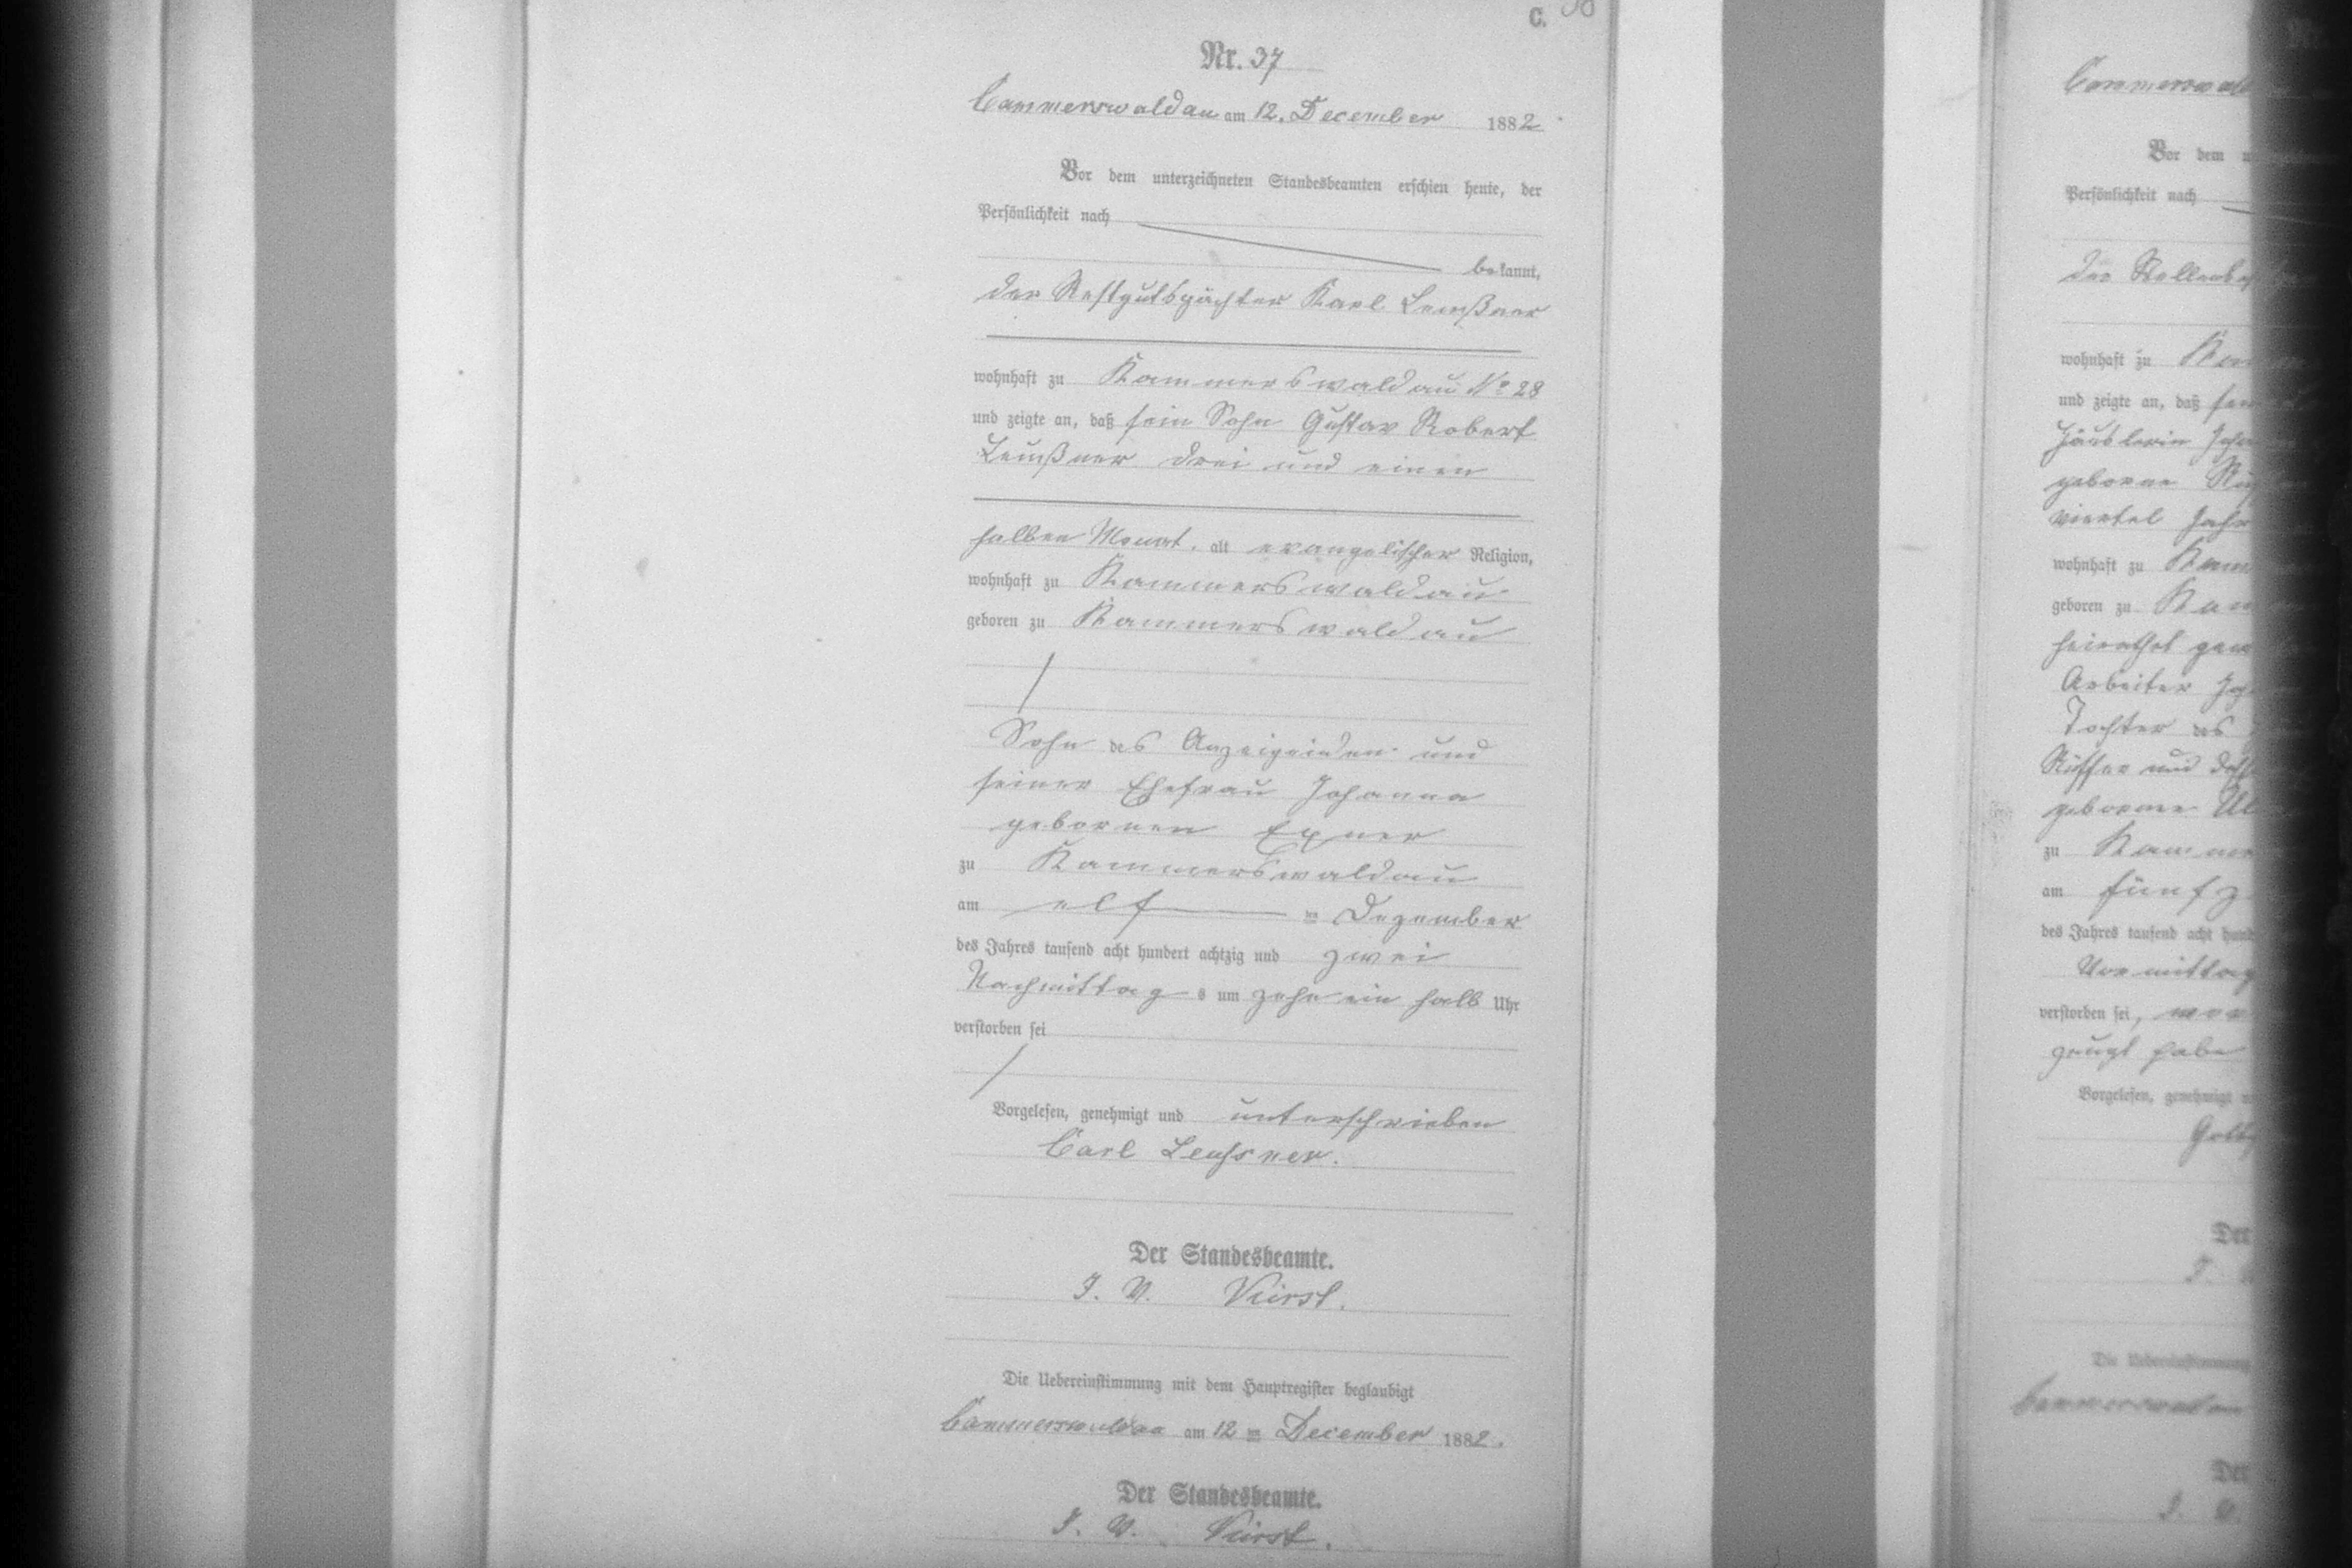 C.
Nr. 37
Cammerswaldau am 12. December 1882
Vor dem unterzeichneten Standesbeamten erschien heute, der
Persönlichkeit nach
bekannt,
der Restgutspächter Karl Leußner
wohnhaft zu Kammerswaldau No 28
und zeigte an, daß sein Sohn Gustav Robert
Leußner drei und einen
halben Monat, alt evangelischer Religion,
wohnhaft zu Kammerswaldau
geboren zu Kammerswaldau
Sohn des Anzeigenden und
seiner Ehefrau Johanna
gebornen Exner
zu Kammerswaldau
am elf ten Dezember
des Jahres tausend acht hundert achtzig und zwei
Nachmittag s um zehn ein halb Uhr
verstorben sei
Vorgelesen, genehmigt und unterschrieben
Carl Leussner.
Der Standesbeamte.
I. V.
Die Uebereinstimmung mit dem Hauptregister beglaubigt
Cammerswaldau am 12 ten December 1882.
Der Standesbeamte.
I. V.
Vor dem
Persönlichkeit nach
wohnhaft zu
und zeigte an, daß
geborne
viertel Jahr
wohnhaft zu
geboren zu
Arbeiter
Tochter des
und
geborene
zu
am fünf
des Jahres tausend acht
Vormittag
verstorben sei,
habe
Vorgelesen, genehmigt
Der